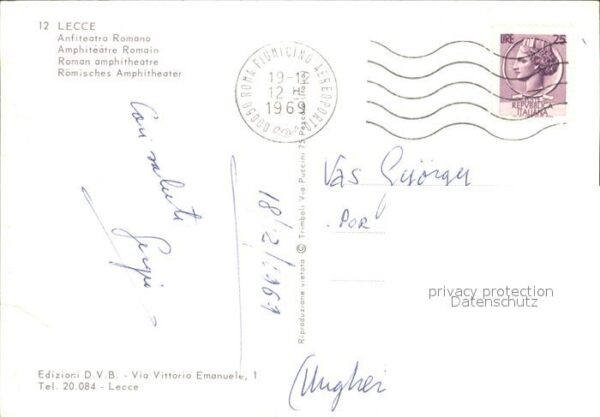 12 LECCE
Anfiteatro Romano
Amphitéâtre Romain
Roman amphitheatre
Römisches Amphitheater
00050 ROMA FIUMICINO AEREOPORTO
19-12
12 H
1969
LIRE 25
REPUBBLICA
ITALIANA
Cari saluti
Sergio
18/12/1969
Riproduzione vietata © Trimboli Via Puccini 75 Pescara
Vas György
POR
privacy protection
Datenschutz
(Ungheria
Edizioni D.V.B. - Via Vittorio Emanuele, 1
Tel. 20.084 - Lecce